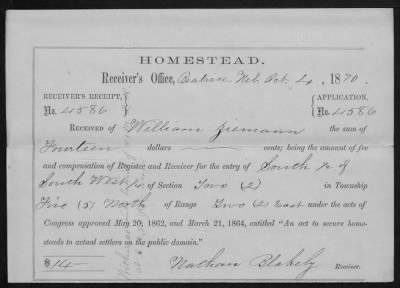 HOMESTEAD.
Receiver's Office, Beatrice, Neb. Oct. 4, 1870.
RECEIVER'S RECEIPT, No. 4586
APPLICATION, No. 4586
RECEIVED OF William Ziemann the sum of
Fourteen dollars cents; being the amount of fee
and compensation of Register and Receiver for the entry of South ½ of
South West ¼ of Section Two (2) in Township
Five (5) North of Range Two (2) East under the acts of
Congress approved May 20, 1862, and March 21, 1864, entitled "An act to secure home-
steads to actual settlers on the public domain."
$14
Nathan Blakely Receiver.